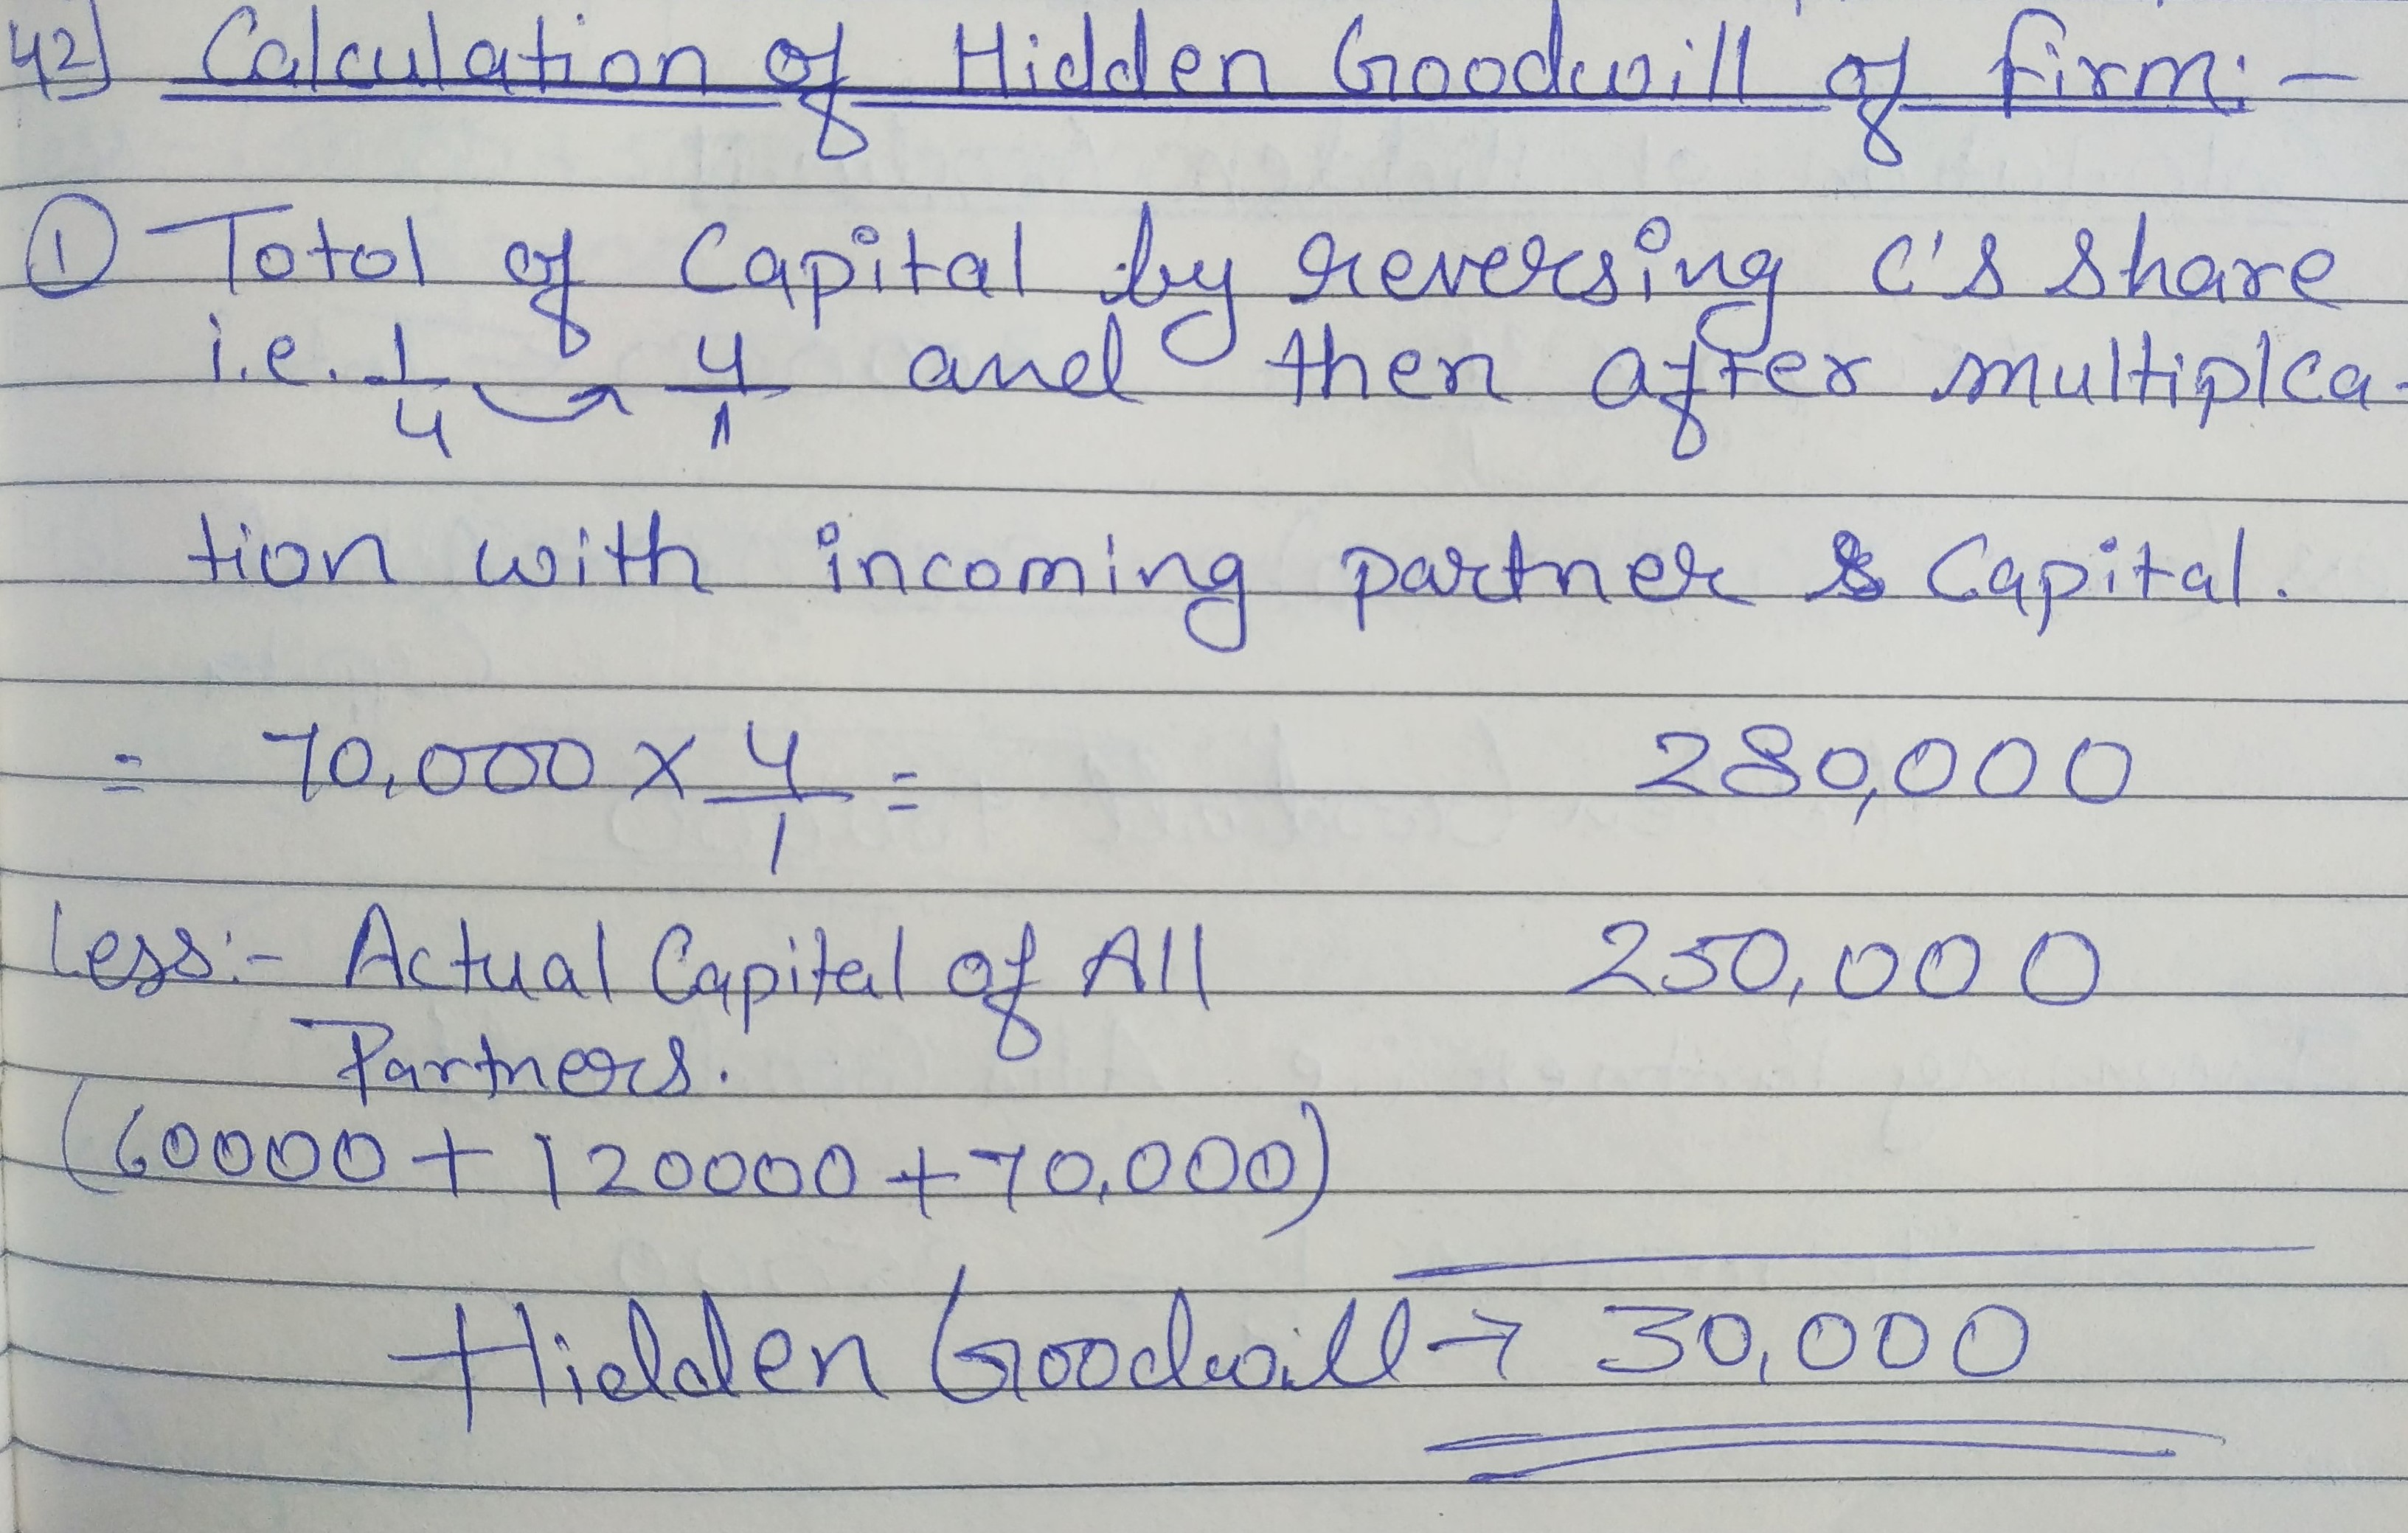 42) Calculation of Hidden Goodwill of firm:-
① Totol of Capital by reversing C's share
i.e. 1/4 → 4/1 and then after multiplca-
tion with incoming partner's Capital.
= 70,000 × 4/1 = 280,000
Less:- Actual Capital of All 250,000
Partners.
(60000 + 120000 + 70,000)
Hidden Goodwill → 30,000